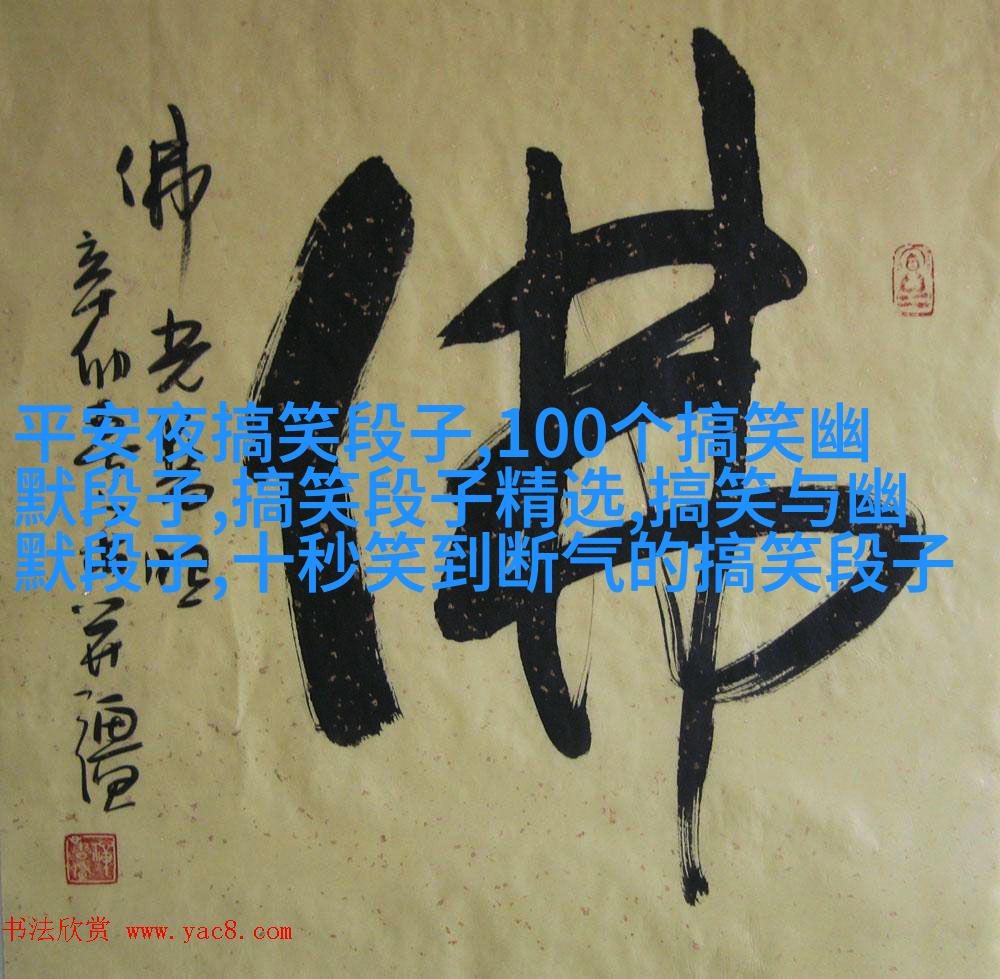 佛
佛光普照
平安夜搞笑段子,100个搞笑幽
默段子,搞笑段子精选,搞笑与幽
默段子,十秒笑到断气的搞笑段子
书法欣赏 www.yac8.com